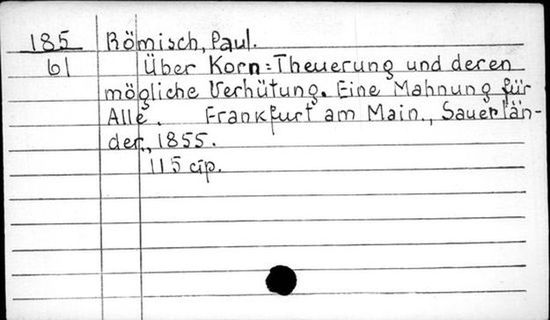 185 Römisch, Paul.
61 Über Korn=Theuerung und deren
mögliche Verhütung. Eine Mahnung für
Alle. Frankfurt am Main., Sauerlän-
der., 1855.
115 стр.